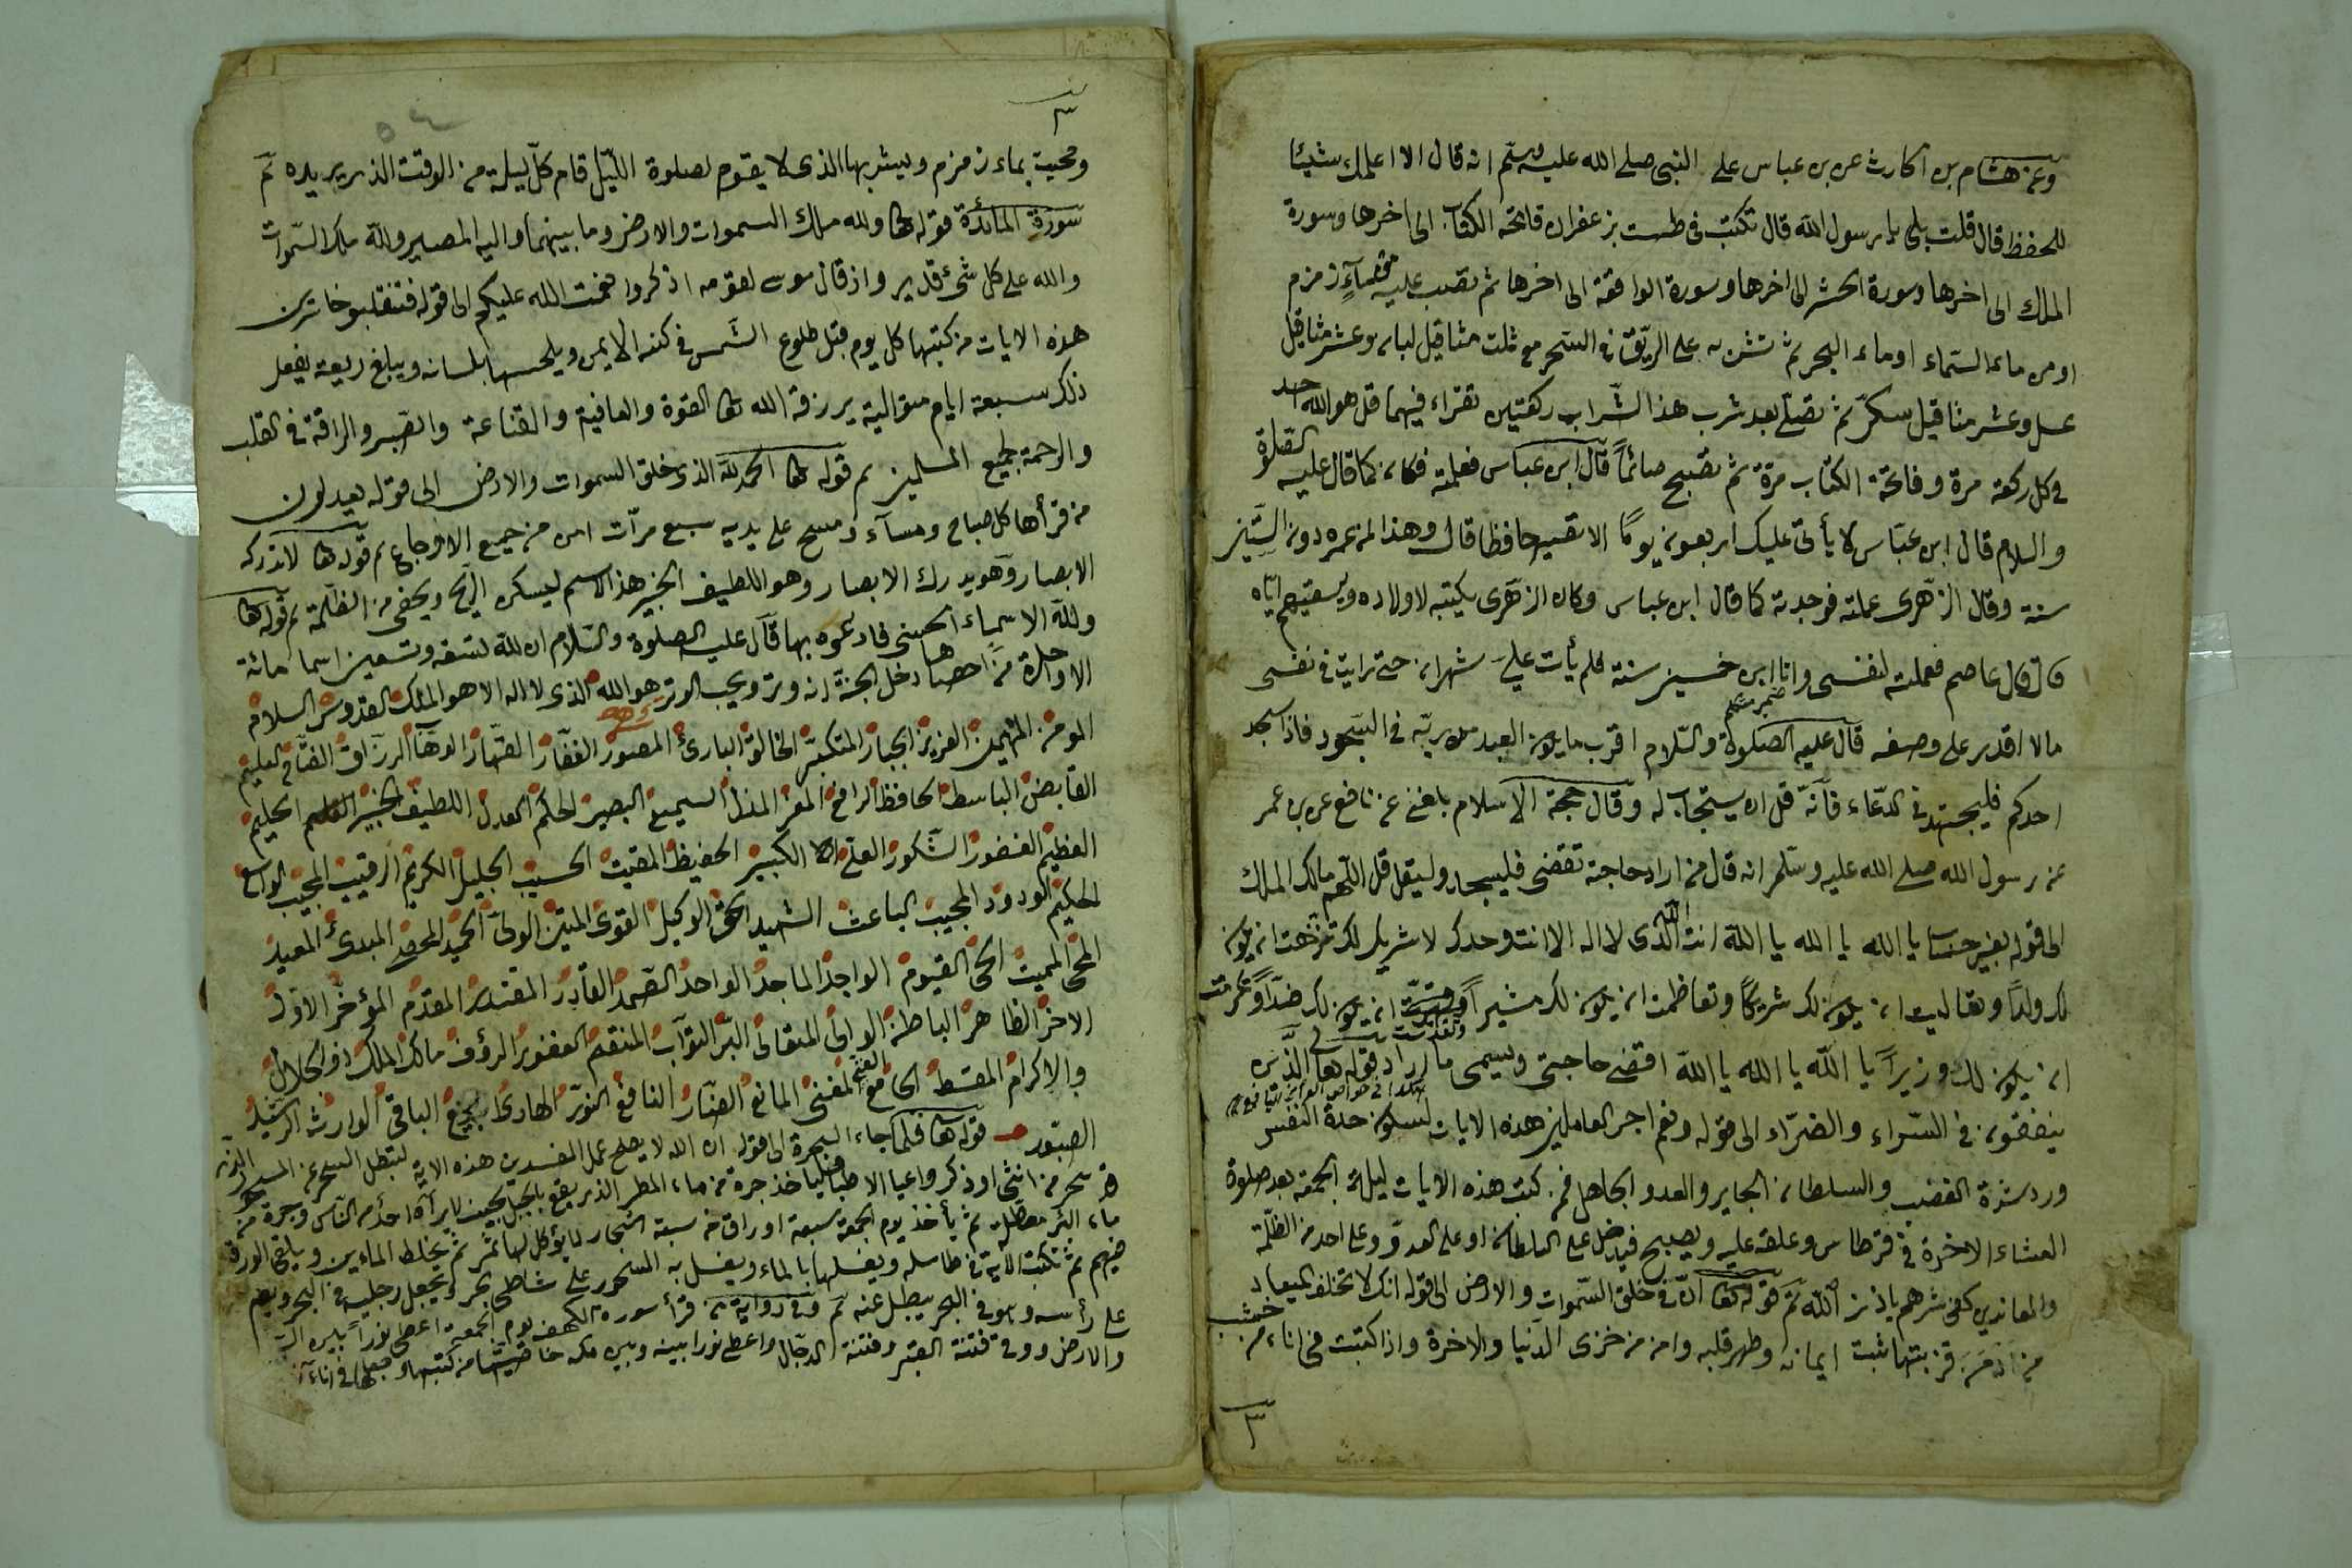 وعن هشام بن الحارث عن بن عباس على النبى صلى الله عليه وسلم انه قال الا اعلمك شيئا
للحفظ قال قلت بلى يا رسول الله قال تكتب فى طست بزعفران فاتحة الكتاب الى اخرها وسورة
الملك الى اخرها وسورة الحشر الى اخرها وسورة الواقعة الى اخرها ثم تصب عليه ماء زمزم
او من ماء السماء او ماء البحر ثم تشربه على الريق فى السحر مع ثلث مثاقيل لبان وعشر مثاقيل
عسل وعشر مثاقيل سكر ثم تصلى بعد شرب هذا الشراب ركعتين تقراء فيهما قل هو الله احد
فى كل ركعة مرة وفاتحة الكتاب مرة ثم تصبح صائماً قال ابن عباس فعلمته فكان كما قال عليه الصلوة
والسلام قال ابن عباس لا يأتى عليك اربعون يوماً الا تصير حافظا قال وهذا لمن عمره دون الستين
سنة وقال الزهرى عملته فوجدته كما قال ابن عباس وكان الزهرى يكتبه لاولاده ويسقيهم اياه
قال عاصم فعملته لنفسى وانا ابن خمسين سنة فلم يأت على شهران حتى رايت فى نفسى
ما لا اقدر على وصفه قال عليه الصلوة والسلام اقرب ما يكون العبد من ربه فى السجود فاذا سجد
احدكم فليجتهد فى الدعاء فأنه قل ان يستجاب له وقال حجة الاسلام بلغنى عن نافع عن بن عمر
عن رسول الله صلى الله عليه وسلم انه قال من اراد حاجة تقضى فليسجد وليقل قل اللهم مالك الملك
الى قوله بغير حساب يا الله يا الله يا الله انت الله الذى لا اله الا انت وحدك لا شريك لك تنزهت ان يكون
لك ولداً وتعاليت ان يكون لك شريكاً وتعاظمت ان يكون لك مشيراً ان يكون لك ضداً وتكرمت
وتقدست
ان يكون لك وزيراً يا الله يا الله يا الله اقضى حاجتى ويسمى ما اراد قوله تعا الذين
ينفقون فى السراء والضراء الى قوله ونعم اجر العاملين هذه الايات لسكون حدة النفس
ورد شدة الغضب والسلطان الجاير والعدو الجاهل فمن كتب هذه الايات ليلة الجمعة بعد صلوة
العشاء الاخرة فى قرطاس وعلقه عليه ويصبح فيدخل على السلطان او على العدو وعلى احد من الظلمة
والمعاندين كفى شرهم باذن الله تم قوله تعا ان فى خلق السموات والارض الى قوله انك لا تخلف الميعاد
من ادمن قرائتها ثبت ايمانه وطهر قلبه وامن من خزى الدنيا والاخرة واذا كتبت فى اناء من خشب
٣
٣
٥٤
ومحيت بماء زمزم ويشربها الذى لا يقوم لصلوة الليل قام كل ليلة من الوقت الذى يريده تم
سورة المائدة قوله تعا ولله ملك السموات والارض وما بينهما واليه المصير ولله ملك السموات
والله على كل شئ قدير واذ قال موسى لقومه اذكروا نعمت الله عليكم الى قوله فتنقلبو خاسرين
هذه الايات من كتبها كل يوم قبل طلوع الشمس فى كفه الايمن ويلحسها بلسانه ويبلغ ريقه يفعل
ذلك سبعة ايام متوالية يرزقه الله تعا القوة والعافية والقناعة والصبر والرافة فى القلب
والرحمة لجميع المسلمين تم قوله تعا الحمد لله الذى خلق السموات والارض الى قوله يعدلون
من قرأها كل صباح ومسآء ومسح على يديه سبع مرآت امن من جميع الاوجاع تم قوله تعا لا تدركه
الابصار وهو يدرك الابصار وهو اللطيف الخبير هذا الاسم ليسكن الريح ويخفى من الظلمة تم قوله تعا
ولله الاسماء الحسنى فادعوه بها قال عليه الصلوة والسلام ان لله تسعة وتسعين اسما مائة
الا واحدة من احصاها دخل الجنة انه وتر ويحب الوتر هو الله الذى لا اله الا هو الملك القدوس السلام
المومن المهيمن العزيز الجبار المتكبر الخالق البارئ المصور الغفار القهار الوهاب الرزاق الفتاح العليم
القابض الباسط الحافظ الرافع المعز المذل السميع البصير الحكم العدل اللطيف الخبير الحليم
العظيم الغفور الشكور العلى الكبير الحفيظ المقيت الحسيب الجليل الكريم الرقيب المجيب الواسع
الحكيم الودود المجيب الباعث الشهيد الحق الوكيل القوى المتين الولى الحميد المحصى المبدئ المعيد
المحى المميت الحى القيوم الواجد الماجد الواحد الصمد القادر المقتدر المقدم المؤخر الاول
الاخر الظاهر الباطن الوالى المتعالى البر التواب المنتقم العفور الرؤف مالك الملك ذو الجلال
والاكرام المقسط الجامع الغنى المغنى المانع الضار النافع النور الهادى البديع الباقى الوارث الرشيد
الصبور قوله تعا فلما جاء السحرة الى قوله ان الله لا يصلح عمل المفسدين هذه الاية لبطل السحر عن المسحور الذى
سحر من انثى او ذكر واعيا الاطبا فليأخذ جرة من ماء المطر الذى يقع بالجبل بحيث لا يرآه احد من الناس وجرة من
ماء البئر معطلة ثم يأخذ يوم الجمعة سبعة اوراق من سبعة اشجار لا يؤكل لها ثمر ثم يخلط الماءين ويلقى الورق
فيهم ثم تكتب الاية فى طاسة ويغسلها بالماء ويغسل به المسحور على شاطى بحر ويجعل رجليه فى البحر ويصب
على رأسه وهو فى البحر يبطل عنه تم وفى رواية من قرأ سورة الكهف يوم الجمعة اعطى نوراً بين السماء
والارض ووقى فتنة القبر وفتنة الدجال واعطى نورا بينه وبين مكة من كتبها وجعلها فى اناء